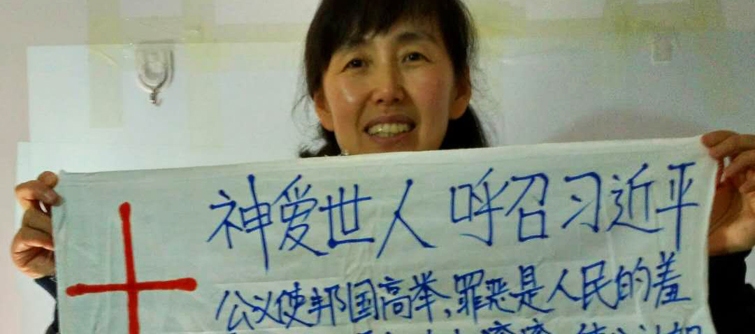 神爱世人 呼召习近平
公义使邦国高举,罪恶是人民的羞